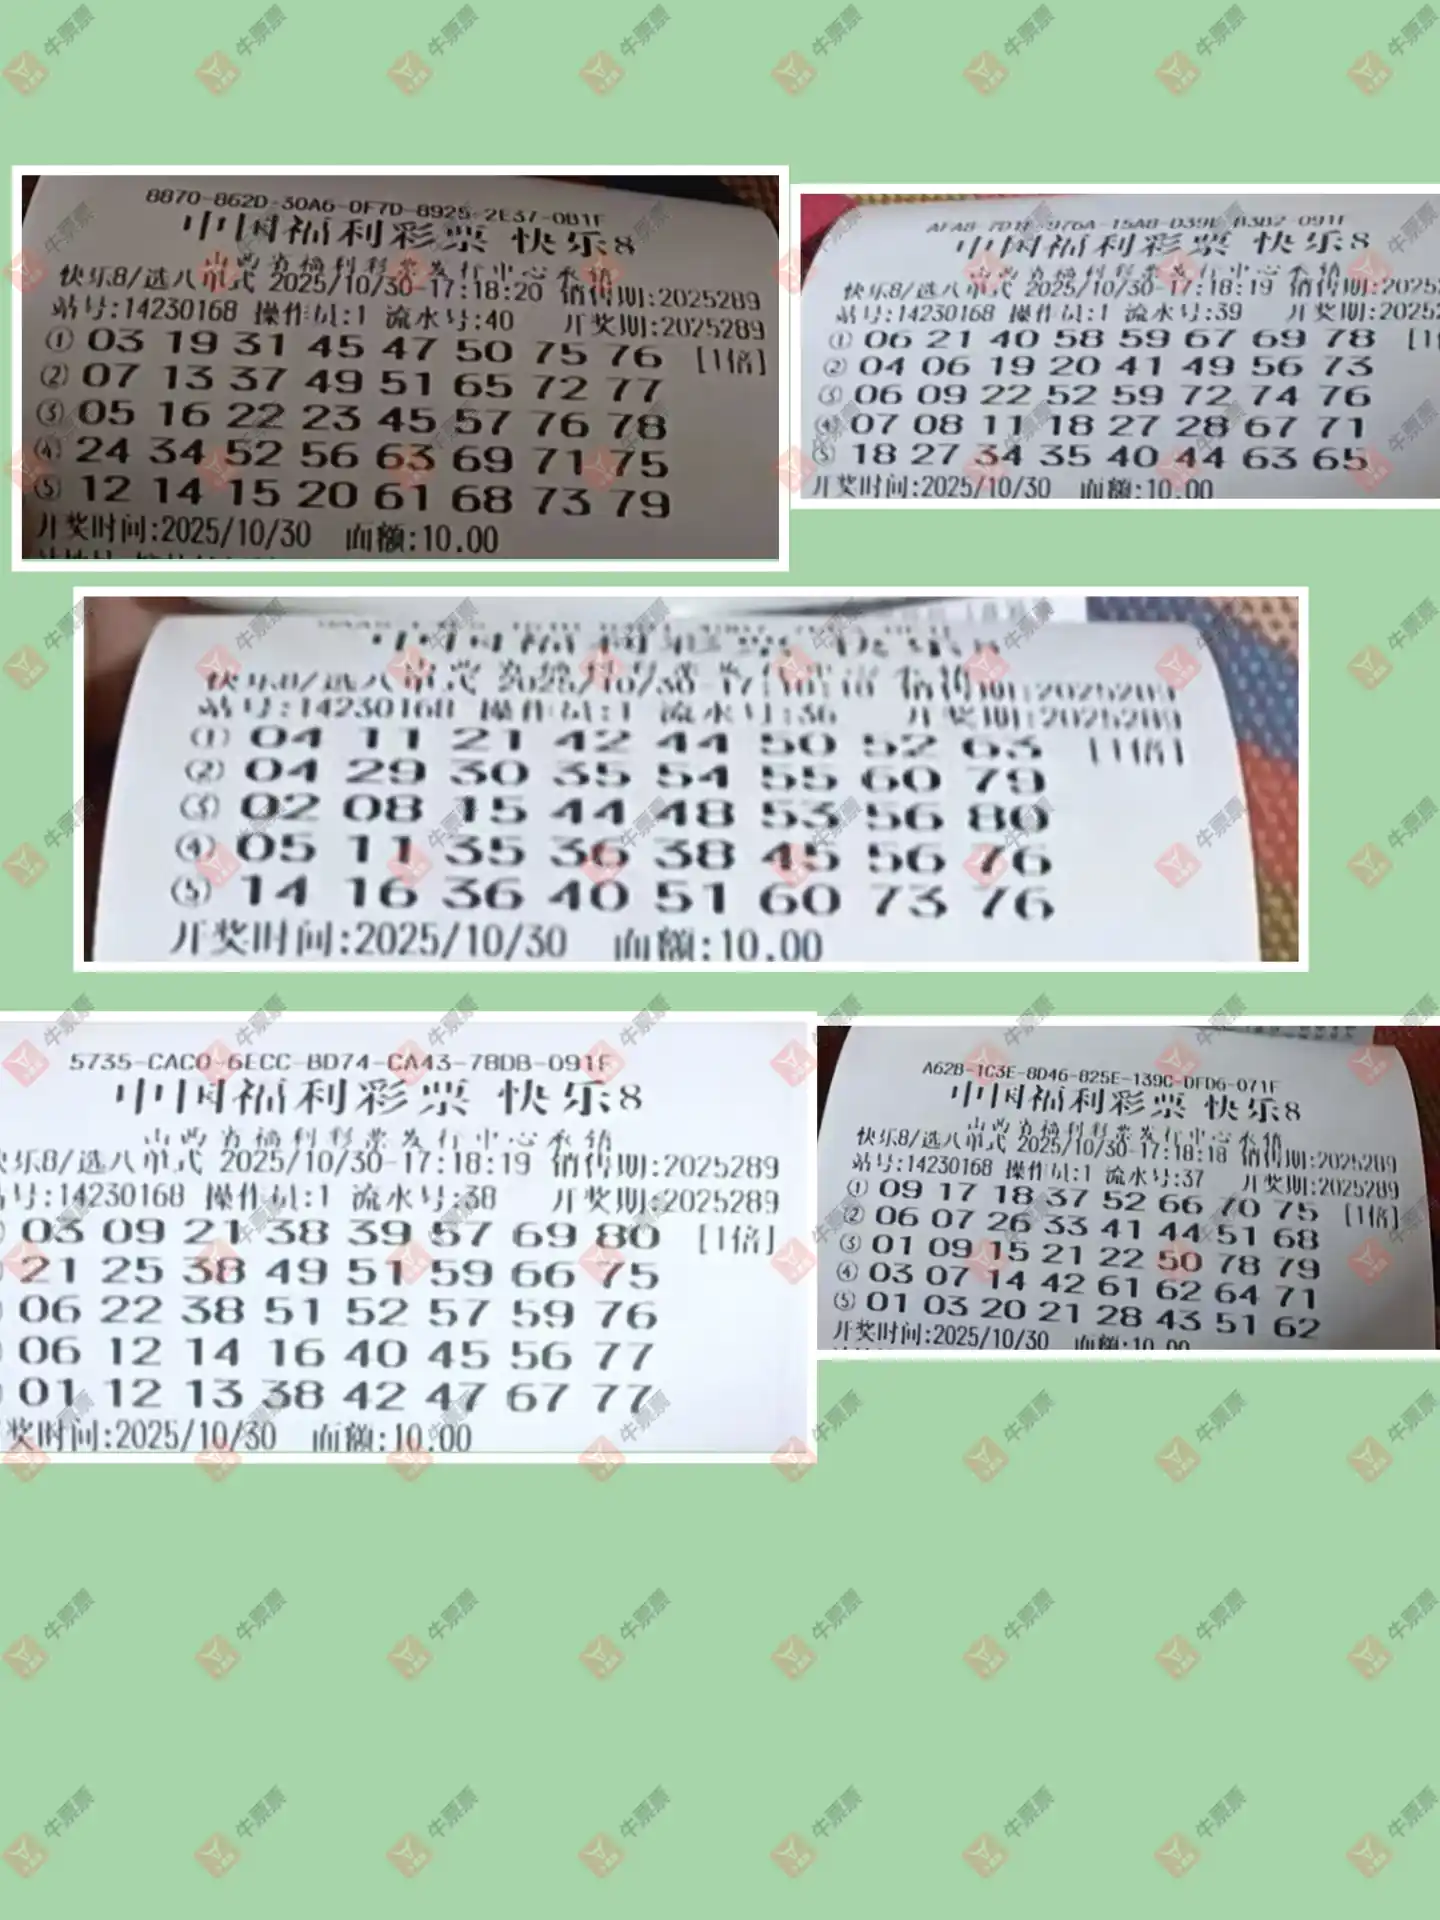 8870-862D-30A6-0F7D-8925-2E37-0B1F
中国福利彩票 快乐8
山西省福利彩票发行中心承销
快乐8/选八单式 2025/10/30-17:18:20 销售期:2025289
站号:14230168 操作员:1 流水号:40 开奖期:2025289
① 03 19 31 45 47 50 75 76 [1倍]
② 07 13 37 49 51 65 72 77
③ 05 16 22 23 45 57 76 78
④ 24 34 52 56 63 69 71 75
⑤ 12 14 15 20 61 68 73 79
开奖时间:2025/10/30 面额:10.00
中国福利彩票 快乐8
山西省福利彩票发行中心承销
快乐8/选八单式 2025/10/30-17:18:19 销售期:2025
站号:14230168 操作员:1 流水号:39 开奖期:2025
① 06 21 40 58 59 67 69 78 [1
② 04 06 19 20 41 49 56 73
③ 06 09 22 52 59 72 74 76
④ 07 08 11 18 27 28 67 71
⑤ 18 27 34 35 40 44 63 65
开奖时间:2025/10/30 面额:10.00
中国福利彩票 快乐8
山西省福利彩票发行中心承销
快乐8/选八单式 2025/10/30-17:18:18 销售期:2025289
站号:14230168 操作员:1 流水号:36 开奖期:2025289
① 04 11 21 42 44 50 52 63 [1倍]
② 04 29 30 35 54 55 60 79
③ 02 08 15 44 48 53 56 80
④ 05 11 35 36 38 45 56 76
⑤ 14 16 36 40 51 60 73 76
开奖时间:2025/10/30 面额:10.00
5735-CAC0-6ECC-8D74-CA43-78DB-091F
中国福利彩票 快乐8
山西省福利彩票发行中心承销
快乐8/选八单式 2025/10/30-17:18:19 销售期:2025289
号:14230168 操作员:1 流水号:38 开奖期:2025289
03 09 21 38 39 57 69 80 [1倍]
21 25 38 49 51 59 66 75
06 22 38 51 52 57 59 76
06 12 14 16 40 45 56 77
01 12 13 38 42 47 67 77
奖时间:2025/10/30 面额:10.00
A62B-1C3E-8D46-825E-139C-DFD6-071F
中国福利彩票 快乐8
山西省福利彩票发行中心承销
快乐8/选八单式 2025/10/30-17:18:18 销售期:2025289
站号:14230168 操作员:1 流水号:37 开奖期:2025289
① 09 17 18 37 52 66 70 75 [1倍]
② 06 07 26 33 41 44 51 68
③ 01 09 15 21 22 50 78 79
④ 03 07 14 42 61 62 64 71
⑤ 01 03 20 21 28 43 51 62
开奖时间:2025/10/30 面额:10.00
牛票票